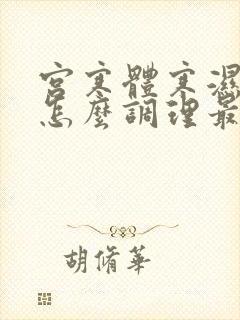 宮寒體寒濕
怎麼調理最
胡脩華